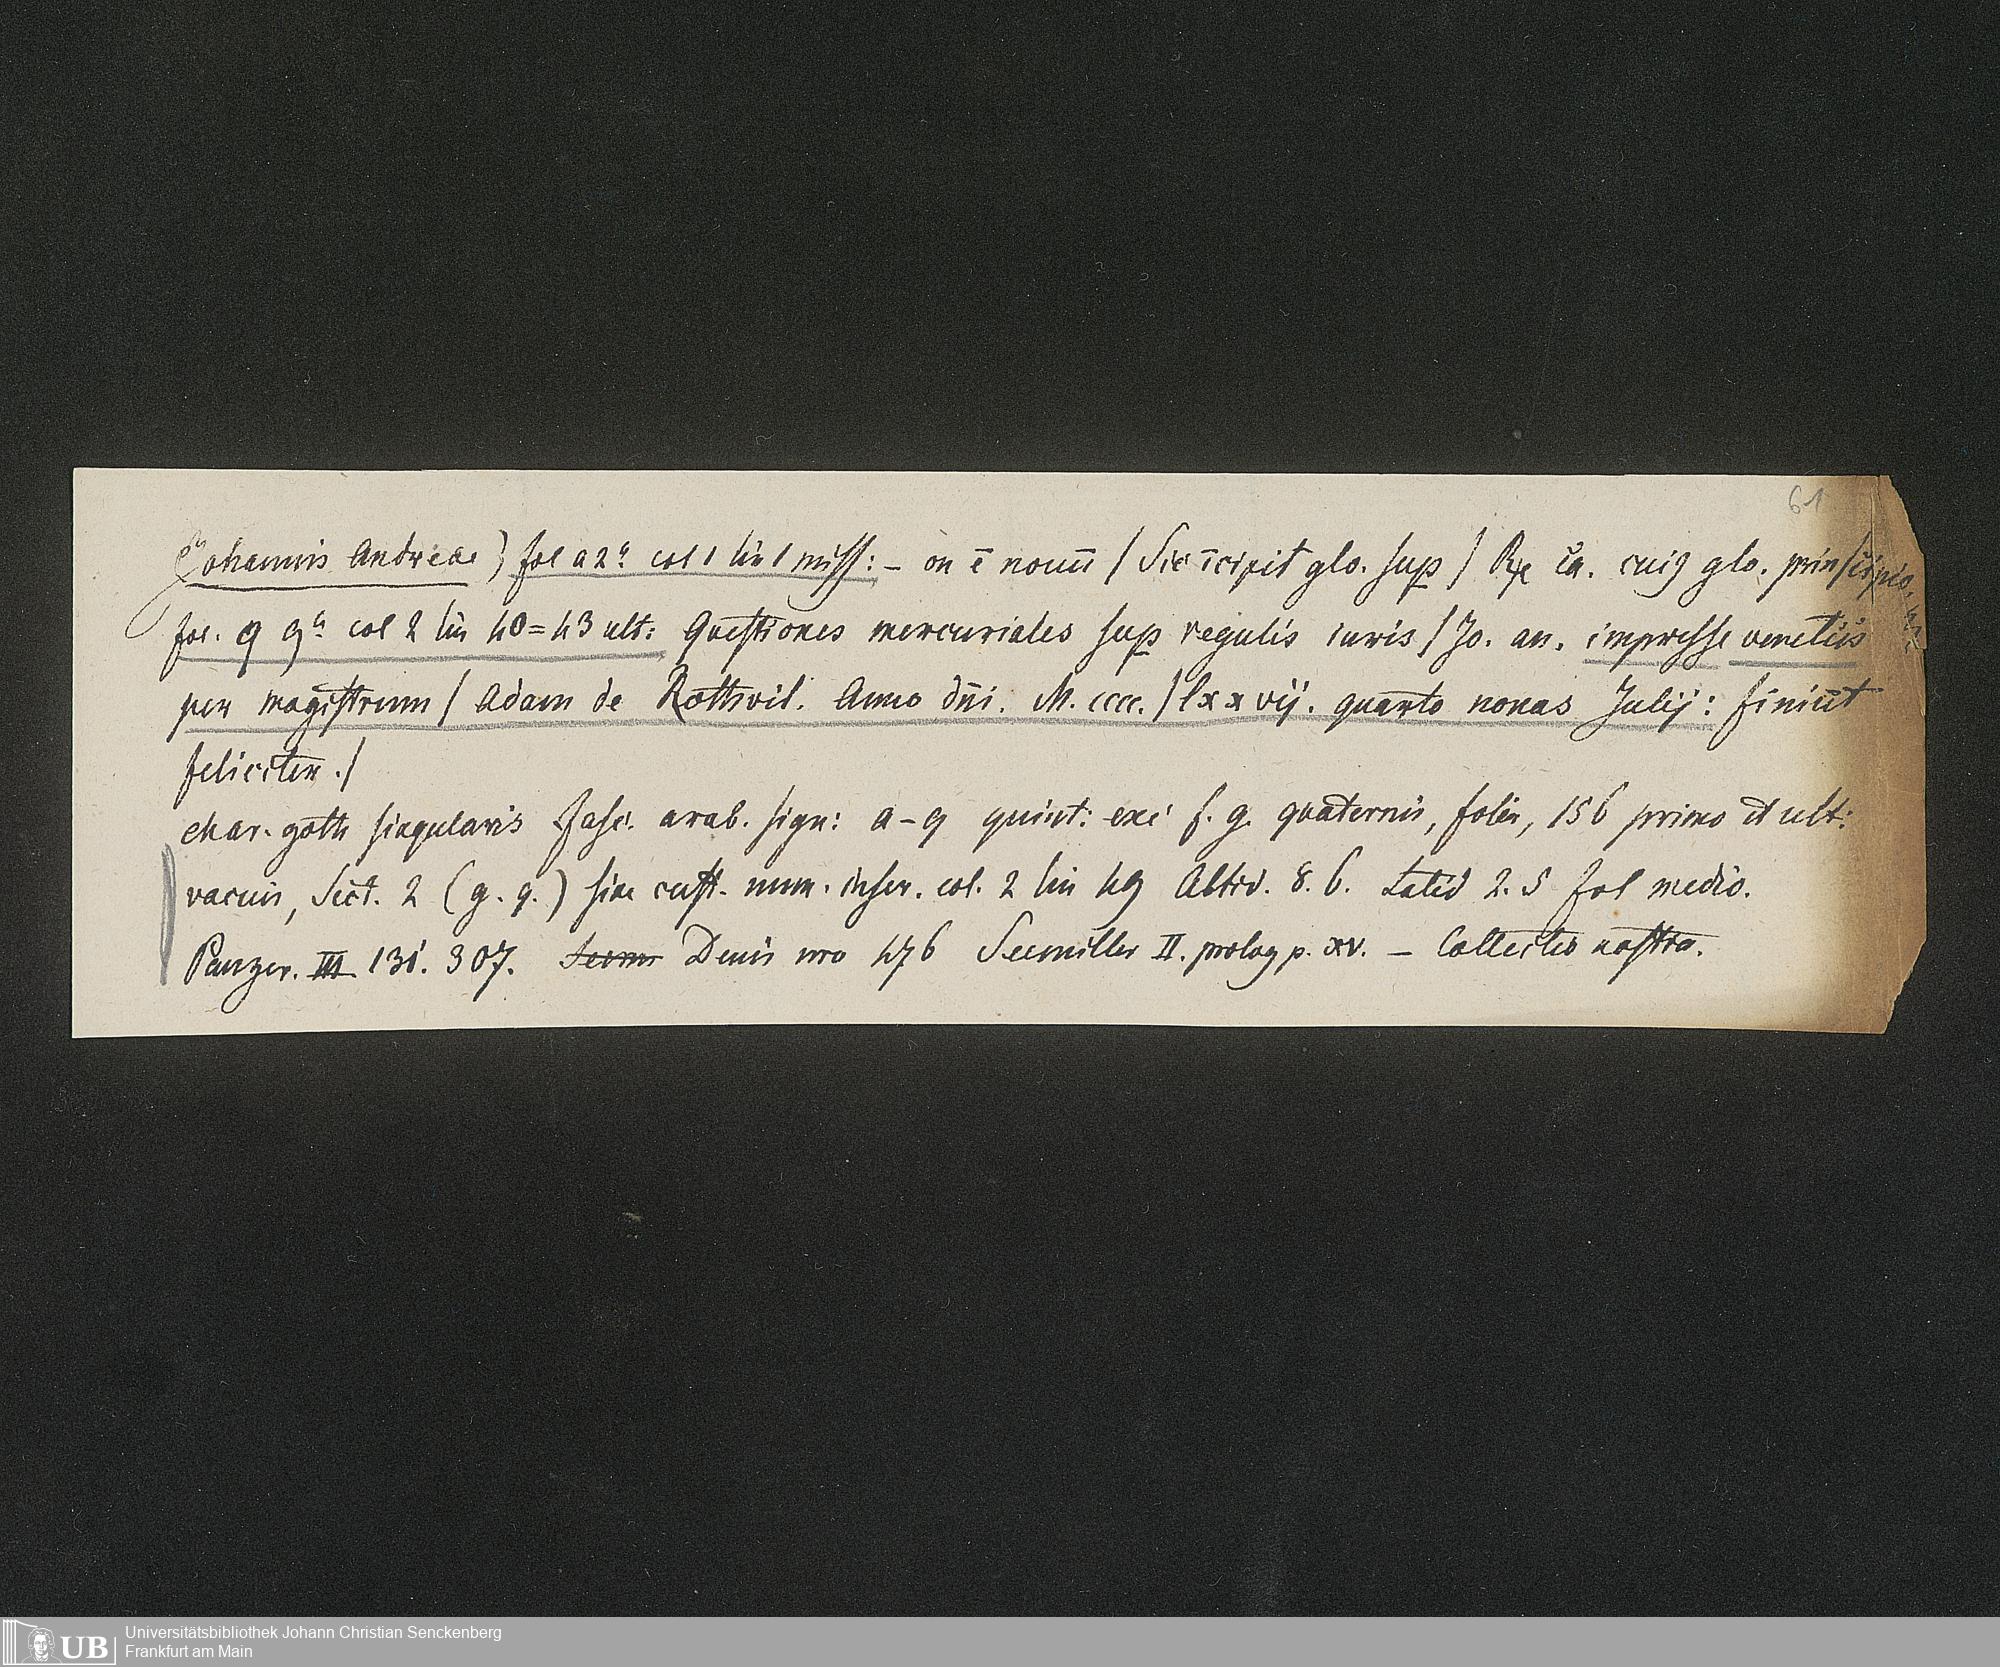 61
Johannis Andreae) fol a 2ª col 1 lin 1 miss: – on ē nouū / Sic īcipit glo. sup / Rx ča. cuiꝯ glo. prin/cipio.
fol. q 9ª col 2 lin 40=43 ult: Questiones mercuriales sup regulis iuris / Jo. an. impresse venetiis
per magistrum / Adam de Rottwil. Anno dn̄i. M. cccc. / lxxvij. quarto nonas Julij: finiūt
feliciter ./
char. goth singularis Fasc. arab. sign: a–q quint: exc f. g. quaternis, foliis, 156 primo et ult:
vacuis, Sect. 2 (g. q.) sine cust. num. inscr. col. 2 lin 49 Altid. 8. 6. Latid 2. 5 fol medio.
Panzer. III 131. 307. Denis nro 476 Seemiller II. prolog p. xv. – Collectio nostra.
Universitätsbibliothek Johann Christian Senckenberg
Frankfurt am Main
UB